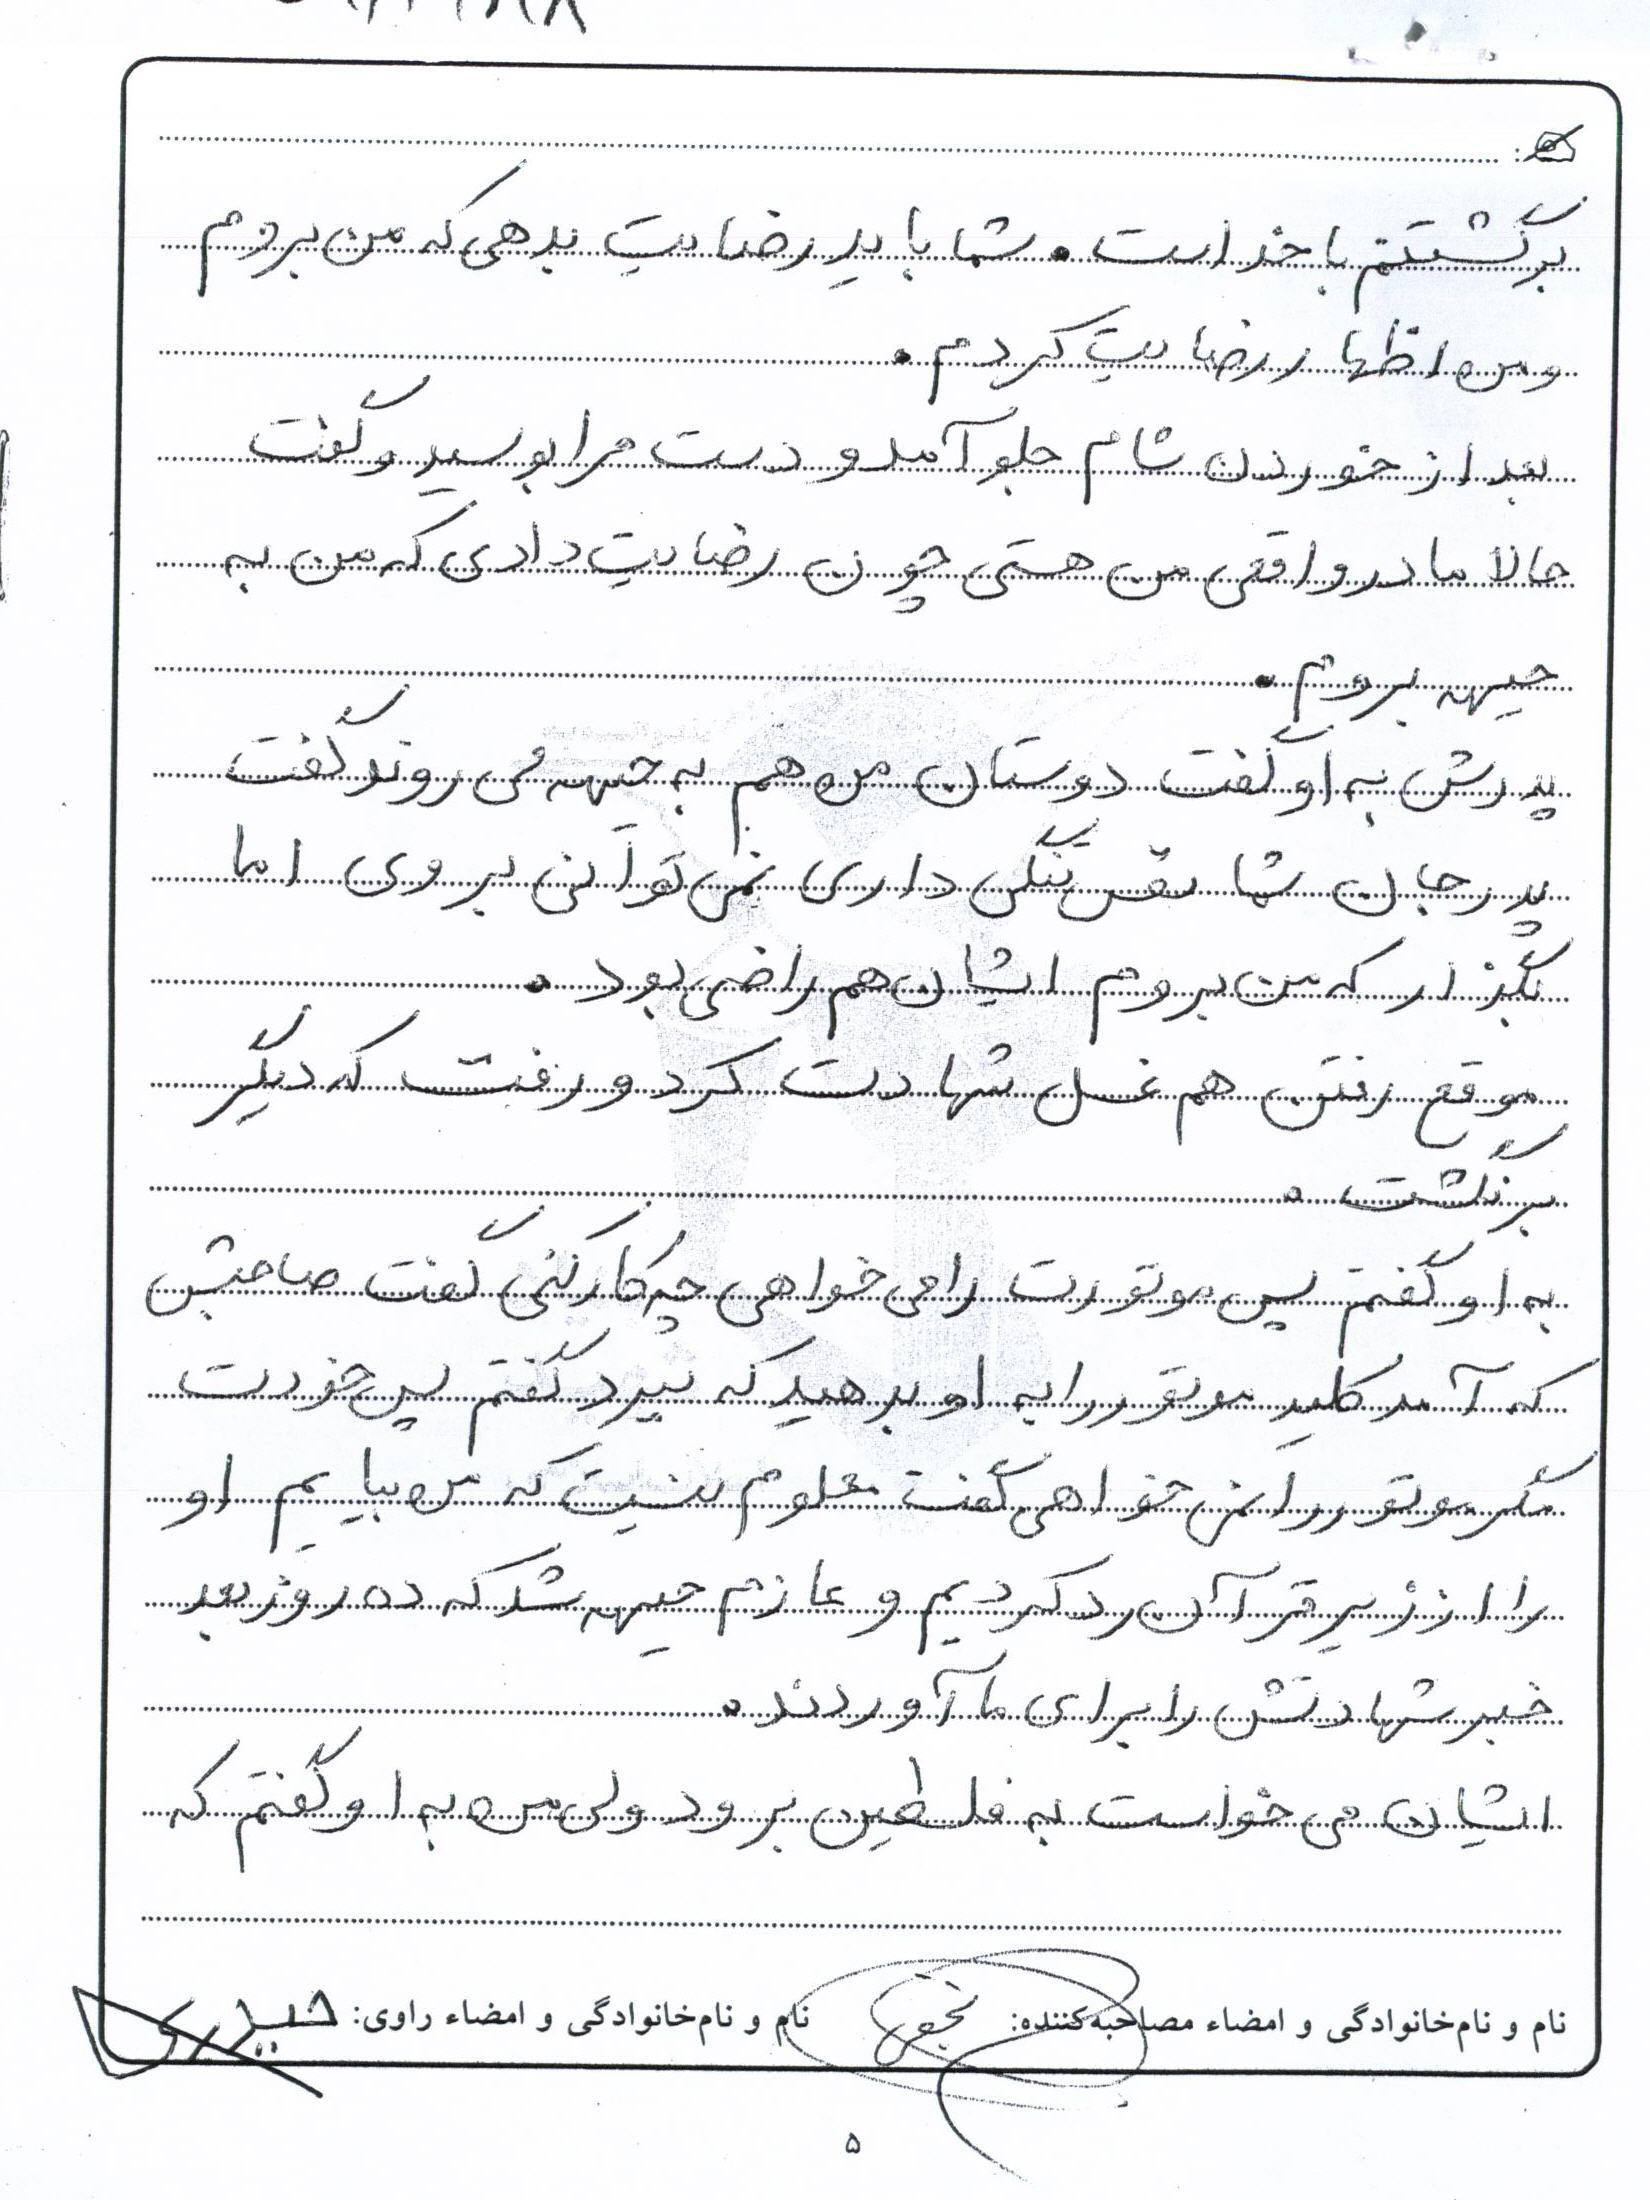 برگشتنم با خداست. شما باید رضایت بدهی که من بروم
و من اظهار رضایت کردم.
بعد از خوردن شام جلو آمد و دست مرا بوسید و گفت
حالا مادر واقعی من هستی چون رضایت دادی که من به
جبهه بروم.
پدرش به او گفت دوستان من هم به جبهه می روند گفت
پدر جان شما نفس تنگی داری نمی توانی بروی اما
بگذار که من بروم ایشان هم راضی بود.
موقع رفتن هم غسل شهادت کرد و رفت که دیگر
برنگشت.
به او گفتم پس موتورت را می خواهی چه کار کنی گفت صاحبش
که آمد کلید موتور را به او بدهید که ببرد گفتم پس خودت
مگر موتور را نمی خواهی گفت معلوم نیست که من بیایم او
را از زیر قرآن رد کردیم و عازم جبهه شد که ده روز بعد
خبر شهادتش را برای ما آوردند.
ایشان می خواست به فلسطین برود ولی من به او گفتم که
نام و نام‌خانوادگی و امضاء مصاحبه‌کننده: نام و نام‌خانوادگی و امضاء راوی:
۵